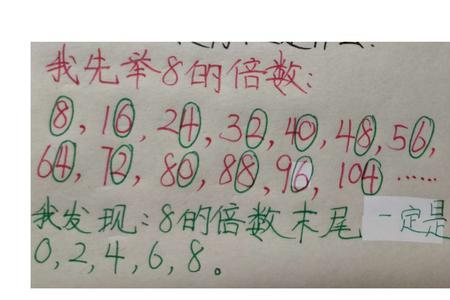 我先举8的倍数:
8, 16, 24, 32, 40, 48, 56,
64, 72, 80, 88, 96, 104 ……
我发现:8的倍数末尾一定是
0,2,4,6,8。